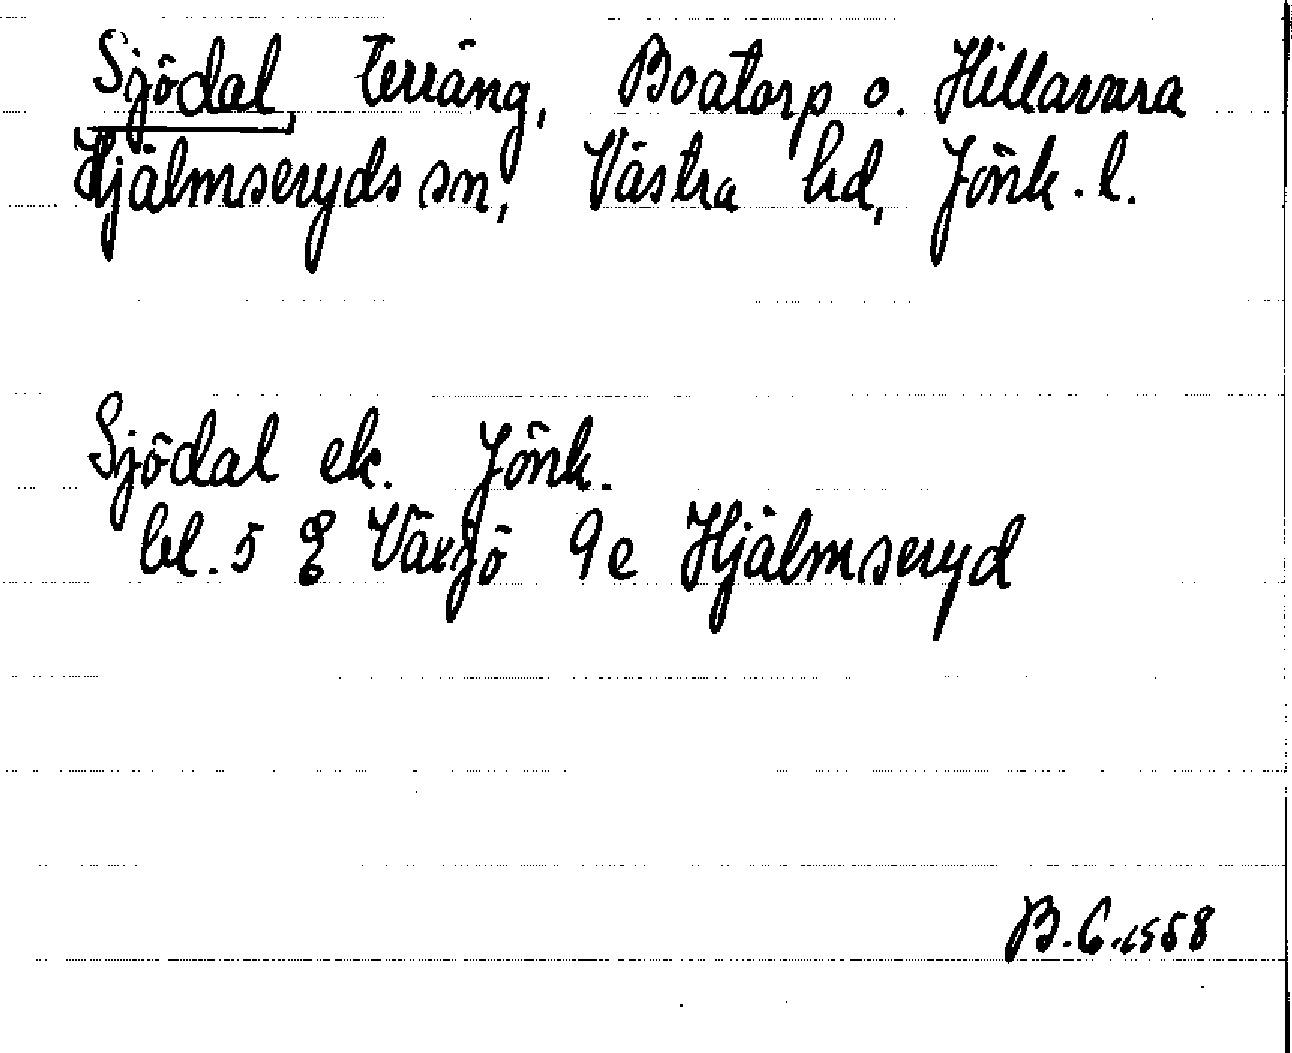 Sjödal terräng, Boatorp o. Hillarara
Hjälmseryds sn, Västra hd, Jönk. l.
Sjödal ek. Jönk.
bl. 5 Växjö 9e Hjälmseryd
B.C. 1958